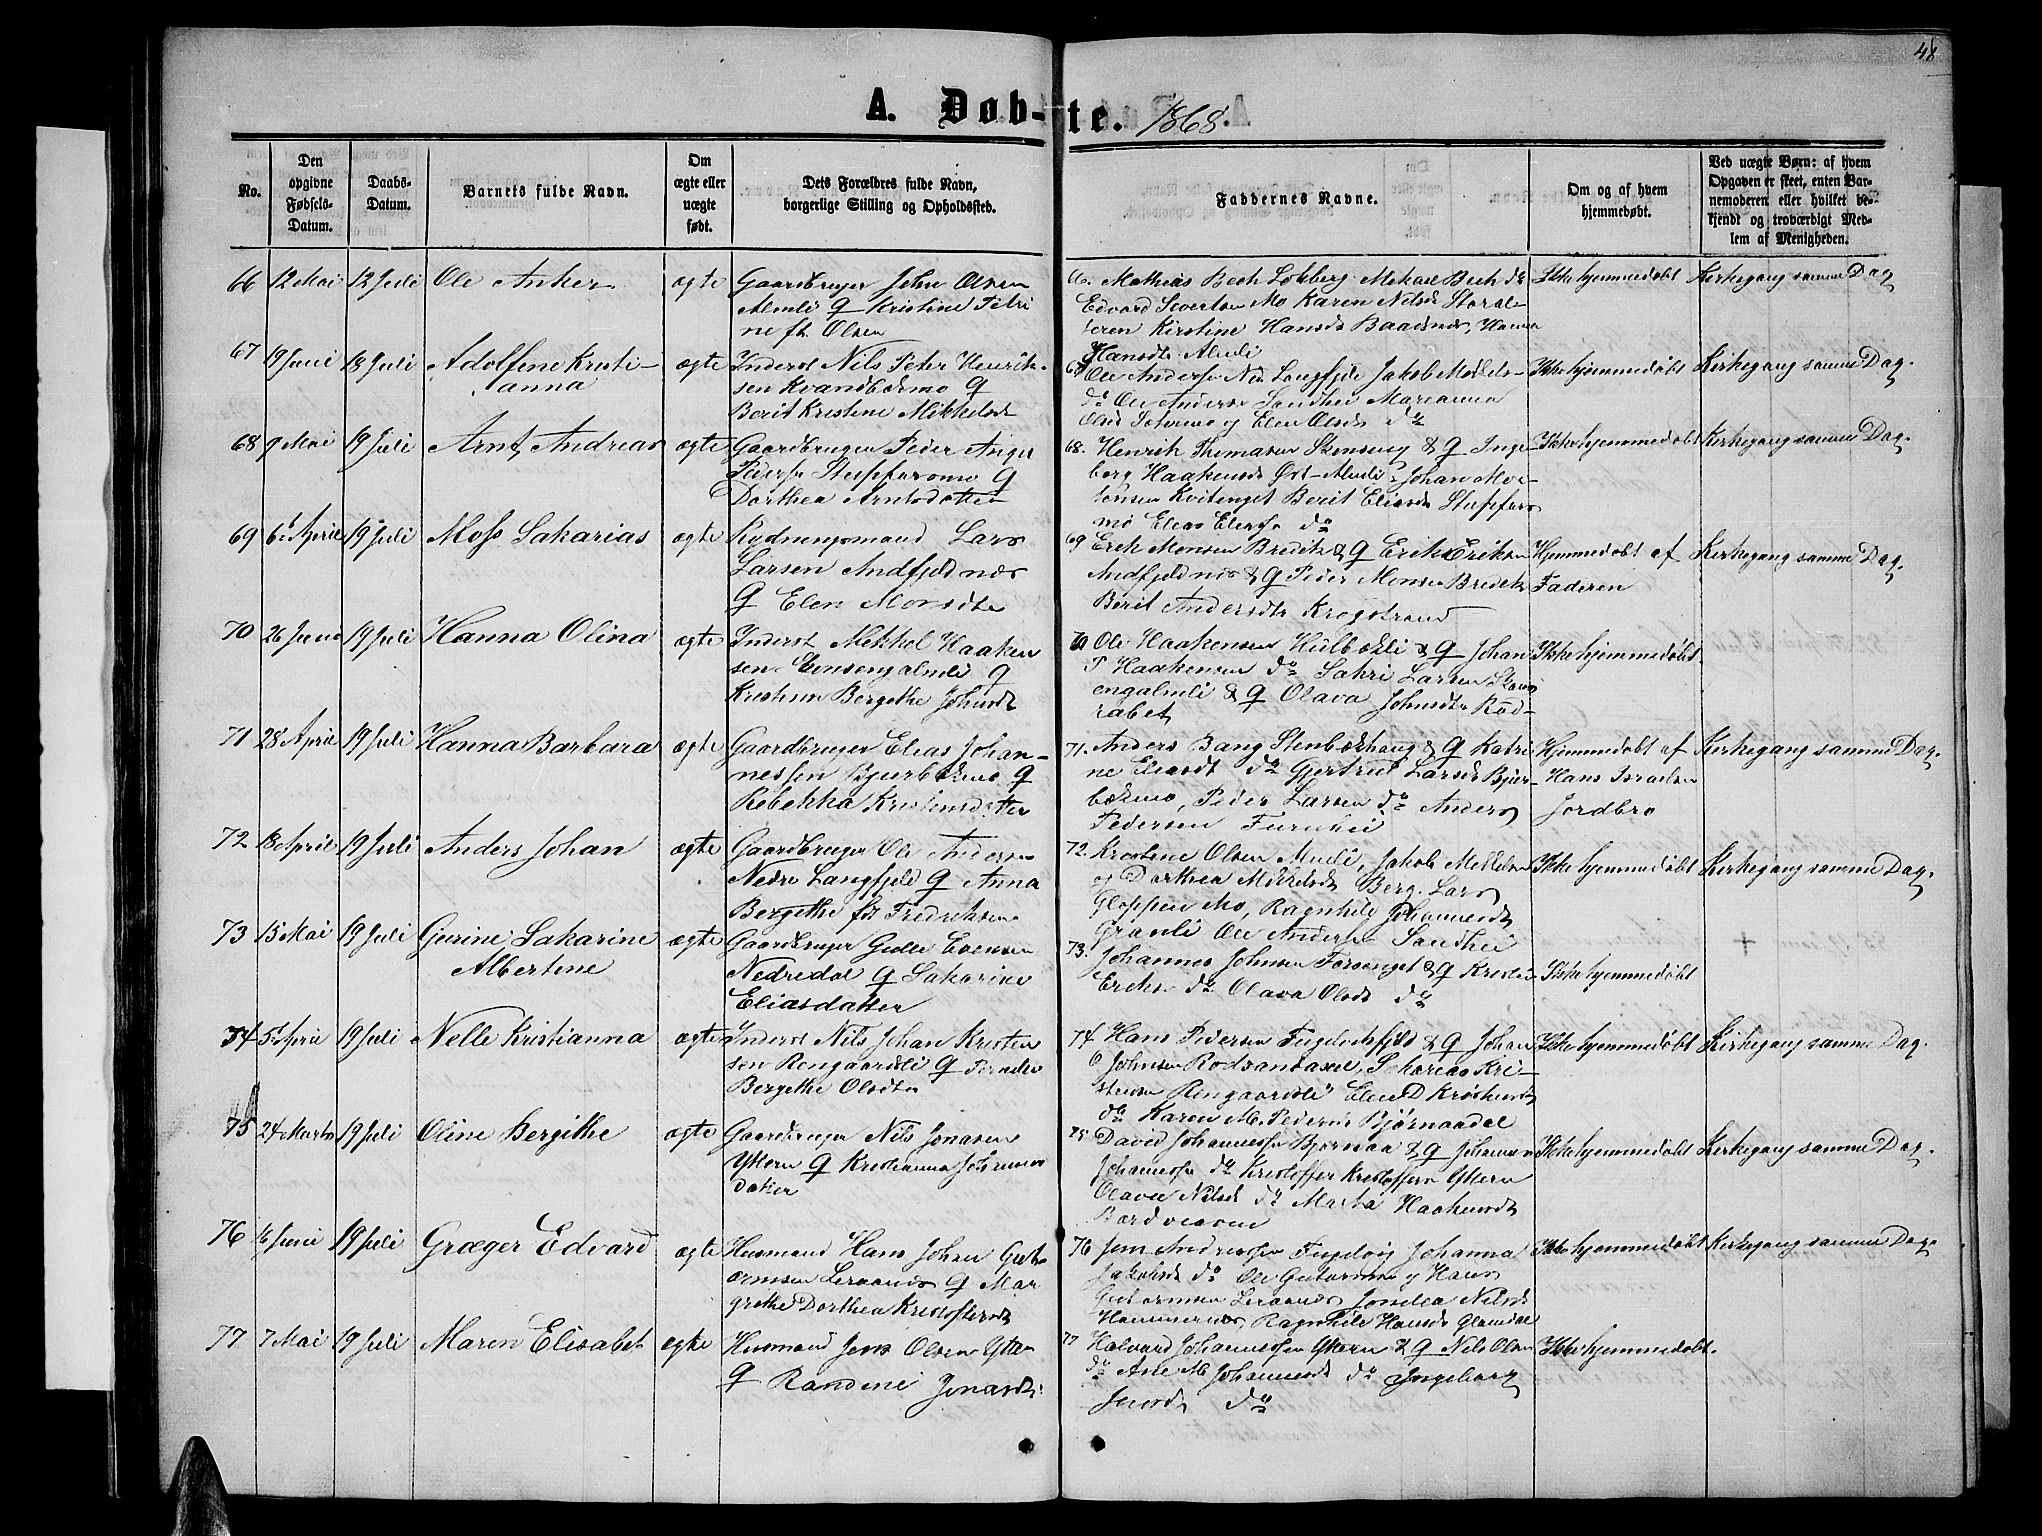 48
A. Døb-te. 1868
No.
Den opgivne Fødsels-Datum.
Daabs-Datum.
Barnets fulde Navn.
Om ægte eller uægte født.
Dets Forældres fulde Navn, borgerlige Stilling og Opholdssted.
Faddernes Navne.
Om og af hvem hjemmedøbt.
Ved uægte Børn: af hvem Opgaven er skeet, enten Barnemoderen eller hvilket bekjendt og troværdigt Medlem af Menigheden.
66 12 Mai 12 Juli Ole Anker ægte Gaardbruger John Olsen
Almli & Kristine Petri
ne ft. Olsen
66. Mathias Bech Løkberg Mekael Bech do
Edvard Sivertsen Mo Karen Nilsd Storal-
teren Kirstine Hansd Baadsnes, Hanna
Hansdtr Almli
Ikke hjemmedøbt Kirkegang samme Dag
67 19 Juni 18 Juli Adolfine Kristi-
anna
ægte Inderst Nils Peter Henrik-
sen Kvandbækmo &
Berit Kristine Mikkelsdt
67 Ole Anders Ned Langfjeld Jakob Mellels-
do Ole Anders Sandhei Marianna
Olsd og Elen Olsdt do
Ikke hjemmedøbt Kirkegang samme Dag.
68 9 Mai 19 Juli Arnt Andreas ægte Gaardbruger Peder Angel
Peders Stupforsmo &
Dorthea Arntsdatter
68. Henrik Thomasen Stensung & & Inge-
borg Haakensd Øst-Almli Johan Mor-
tensen Kvitenget Berit Eliasd Stupfors
mo Elias Eliass do
Ikke hjemmedøbt Kirkegang samme Dag.
69 6 April 19 Juli Moss Sakarias ægte Rydningsmand Lars
Larsen Andfjeldnæs
& Elen Monsdtr
69 Erik Monsen Bredek & & Erik Eriksen
Andfjeldnes & & Peder Monsen Bredek
Berit Andersdtr Krogstrand
Hjemmedøbt af
Faderen
Kirkegang samme Dag.
70 26 Juni 19 Juli Hanna Olina ægte Inderst Mekkel Haaken
sen Evensengalmli &
Kristine Bergithe Johnsdt
70 Ole Haakensen Hulbækli & & Johan
P Haakensen do Sakri Larsen Stens
engalmli & & Olava Johnsdtr Rød-
rabet
Ikke hjemmedøbt.
71 28 April 19 Juli Hanna Barbara ægte Gaardbruger Elias Johan-
nessen Bjurbækmo &
Rebekka Kristensdatter
71. Anders Bang Stenbækhaug & & Katri
ne Eliasdt do Gjertrud Larsd Bjur-
bækmo, Peder Larsen do Anders
Pedersen Furuhei
Hjemmedøbt af
Hans Israelsen
Jordbro
Kirkegang samme Dag.
72 18 April 19 Juli Anders Johan ægte Gaardbruger Ole Andersen
Nedre Langfjeld & Anna
Bergithe føt Fredriksen
72. Kristine Olsen Almli, Jakob Mellelsen
og Dorthea Mikkelsd Berg. Lars
Gloppen Mo, Ragnhild Johannesdt
Granli Ole Anders Sandhei
Ikke hjemmedøbt Kirkegang samme Dag.
73 15 Mai 19 Juli Gurine Sakarine
Albertine
ægte Gaardbruger Gulle Evensen
Nedredal & Sakarine
Eliasdatter
73. Johannes Johnsen Forsenget & & Kristi
Eriks do Olava Olsdt do
Ikke hjemmedøbt
74 5 April 19 Juli Nelle Kristianna ægte Inderst Nils Johan Kristen
sen Rengaardsli & Pernille
Bergithe Olsdtr
74 Hans Pedersen Fugelochfjeld & & Johan
O Johnsen Rodsandaxel, Sakarias Kri-
stensen Rengaardsli Elen D Kristensdt
do Karen M. Pedersd Bjørnaadal
Ikke hjemmedøbt Kirkegang samme Dag.
75 24 Marts 19 Juli Oline Bergithe ægte Gaardbruger Nils Jonasen
Yttern & Kristianna Johannes
datter
75 David Johannessen Bjørnaa & & Johannes
Johannessen do Kristoffer Kristoffersen Yttern
Olava Nilsd do Marta Haakensdt
Bardveaven
Ikke hjemmedøbt Kirkegang samme Dag.
76 6 Juni 19 Juli Græger Edvard ægte Husmand Hans Johan Gut-
ormsen Leraand & Mar
grethe Dorthea Kristoffersd
76 Jens Andreassen Fugelvig Johanna
Jakobsd do Ole Gutormsen og Hans
Gutormsen Leraand, Jonilea Nilsd
Hammernes, Ragnhild Hansd Glamdal
Ikke hjemmedøbt Kirkegang samme Dag
77 7 Mai 19 Juli Maren Elisabet ægte Husmand Jens Olsen Ytter
& Randine Jonasdt
77 Halvard Johannessen Yttern & & Nils Olsen
do Ane M Johannesdt do Ingeborg
Jensdt do
Ikke hjemmedøbt.